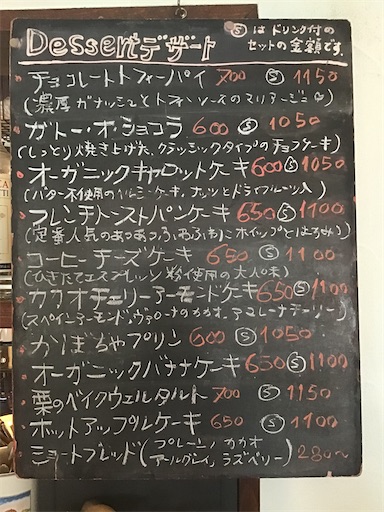 Dessertデザート
Ⓢ はドリンク付の
セットの金額です。
チョコレートトフィーパイ 700 Ⓢ 1150
(濃厚ガナッシュとトフィーソースのマリアージュ
ガトー・オ・ショコラ 600 Ⓢ 1050
(しっとり焼き上げた、クラッシックタイプのチョコケーキ)
オーガニックキャロットケーキ 600 Ⓢ 1050
(バター不使用のヘルシーケーキ、ナッツとドライフルーツ入)
フレンチトーストパンケーキ 650 Ⓢ 1100
(定番人気のあつあつふわふわにホイップとはちみつ)
コーヒーチーズケーキ 650 Ⓢ 1100
(ひきたてエスプレッソ粉使用の大人味)
カカオチェリーアーモンドケーキ 650 Ⓢ 1100
(スペインアーモンド、ヴァローナのカカオ、アマレーナチェリー)
かぼちゃプリン 600 Ⓢ 1050
オーガニックバナナケーキ 650 Ⓢ 1100
栗のベイクウェルタルト 700 Ⓢ 1150
ホットアップルケーキ 650 Ⓢ 1100
ショートブレッド(プレーン、カカオ
アールグレイ、ラズベリー) 280〜